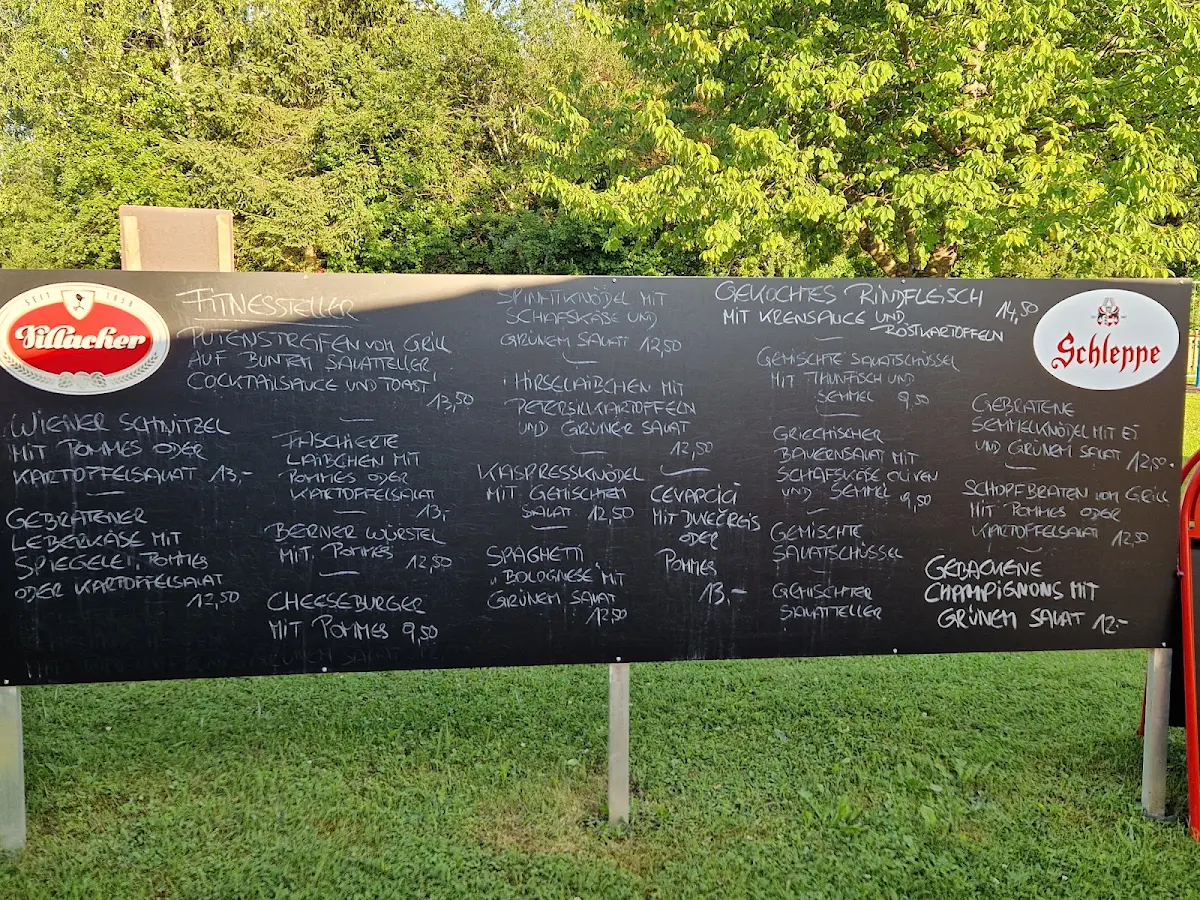 SEIT 1858
Villacher
FITNESSTELLER
PUTENSTREIFEN VOM GRILL
AUF BUNTEN SALATTELLER
COCKTAILSAUCE UND TOAST
13,50
WIENER SCHNITZEL
MIT POMMES ODER
KARTOFFELSALAT 13,-
GEBRATENER
LEBERKÄSE MIT
SPIEGELEI, POMMES
ODER KARTOFFELSALAT
12,50
FASCHIERTE
LAIBCHEN MIT
POMMES ODER
KARTOFFELSALAT
13,-
BERNER WÜRSTEL
MIT POMMES 12,50
CHEESEBURGER
MIT POMMES 9,50
SPINATKNÖDEL MIT
SCHAFSKÄSE UND
GRÜNEM SALAT 12,50
HIRSELAIBCHEN MIT
PETERSILKARTOFFELN
UND GRÜNER SALAT
12,50
KASPRESSKNÖDEL
MIT GEMISCHTEM
SALAT 12,50
SPAGHETTI
"BOLOGNESE" MIT
GRÜNEM SALAT
12,50
CEVAPCICI
MIT DUVEČREIS
ODER
POMMES
13,-
GEKOCHTES RINDFLEISCH
MIT KRENSAUCE UND 14,50
RÖSTKARTOFFELN
GEMISCHTE SALATSCHÜSSEL
MIT THUNFISCH UND
SEMMEL 9,50
GRIECHISCHER
BAUERNSALAT MIT
SCHAFSKÄSE OLIVEN
UND SEMMEL 9,50
GEMISCHTE
SALATSCHÜSSEL
GEMISCHTER
SALATTELLER
Schleppe
GEBRATENE
SEMMELKNÖDEL MIT EI
UND GRÜNEM SALAT 12,50
SCHOPFBRATEN VOM GRILL
MIT POMMES ODER
KARTOFFELSALAT 12,50
GEBACKENE
CHAMPIGNONS MIT
GRÜNEM SALAT 12,-